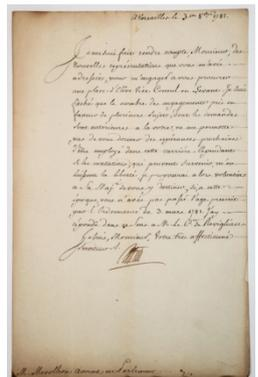 A Versailles le 3 8bre 1781.
Je me suis fait rendre compte, Monsieur, des
Nouvelles représentations que vous m'avés
adressées, pour m'engager à vous procurer
une place d'Elève Vice Consul en Levant. Je suis
faché que le nombre des engagemens pris en
faveur de plusieurs Sujets, dont les demandes
sont antérieures à la votre, ne me permette
pas de vous donner des espérances prochaines
d'être employé dans cette carrière. Cependant
si les mutations, qui peuvent survenir, m'en
laissent la liberté, je proposerai alors volontiers
à Sa Maj. de vous y destiner, si à cette
époque, vous n'avés pas passé l'age prescrit
par l'Ordonnance du 3. mars 1781. J'ay
répondu dans ce Sens à M. le Cte. de
Je suis, Monsieur, Votre très affectionné
Serviteur /.
M. avocat en Parlement